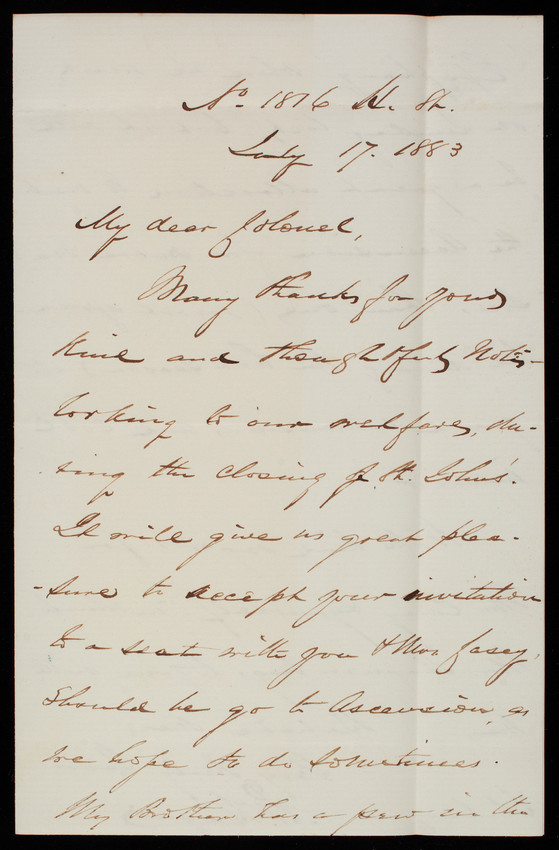 No. 1816 H. St.
July 17. 1883
My dear Colonel,
Many thanks for your
kind and thoughtful Note,
looking to our welfare, du-
ring the closing of St. Johns'.
It will give us great plea-
-sure to accept your invitation
to a seat with you & Mrs Casey,
should we go to Ascension, as
we hope to do sometimes.
My Brother has a pew in the